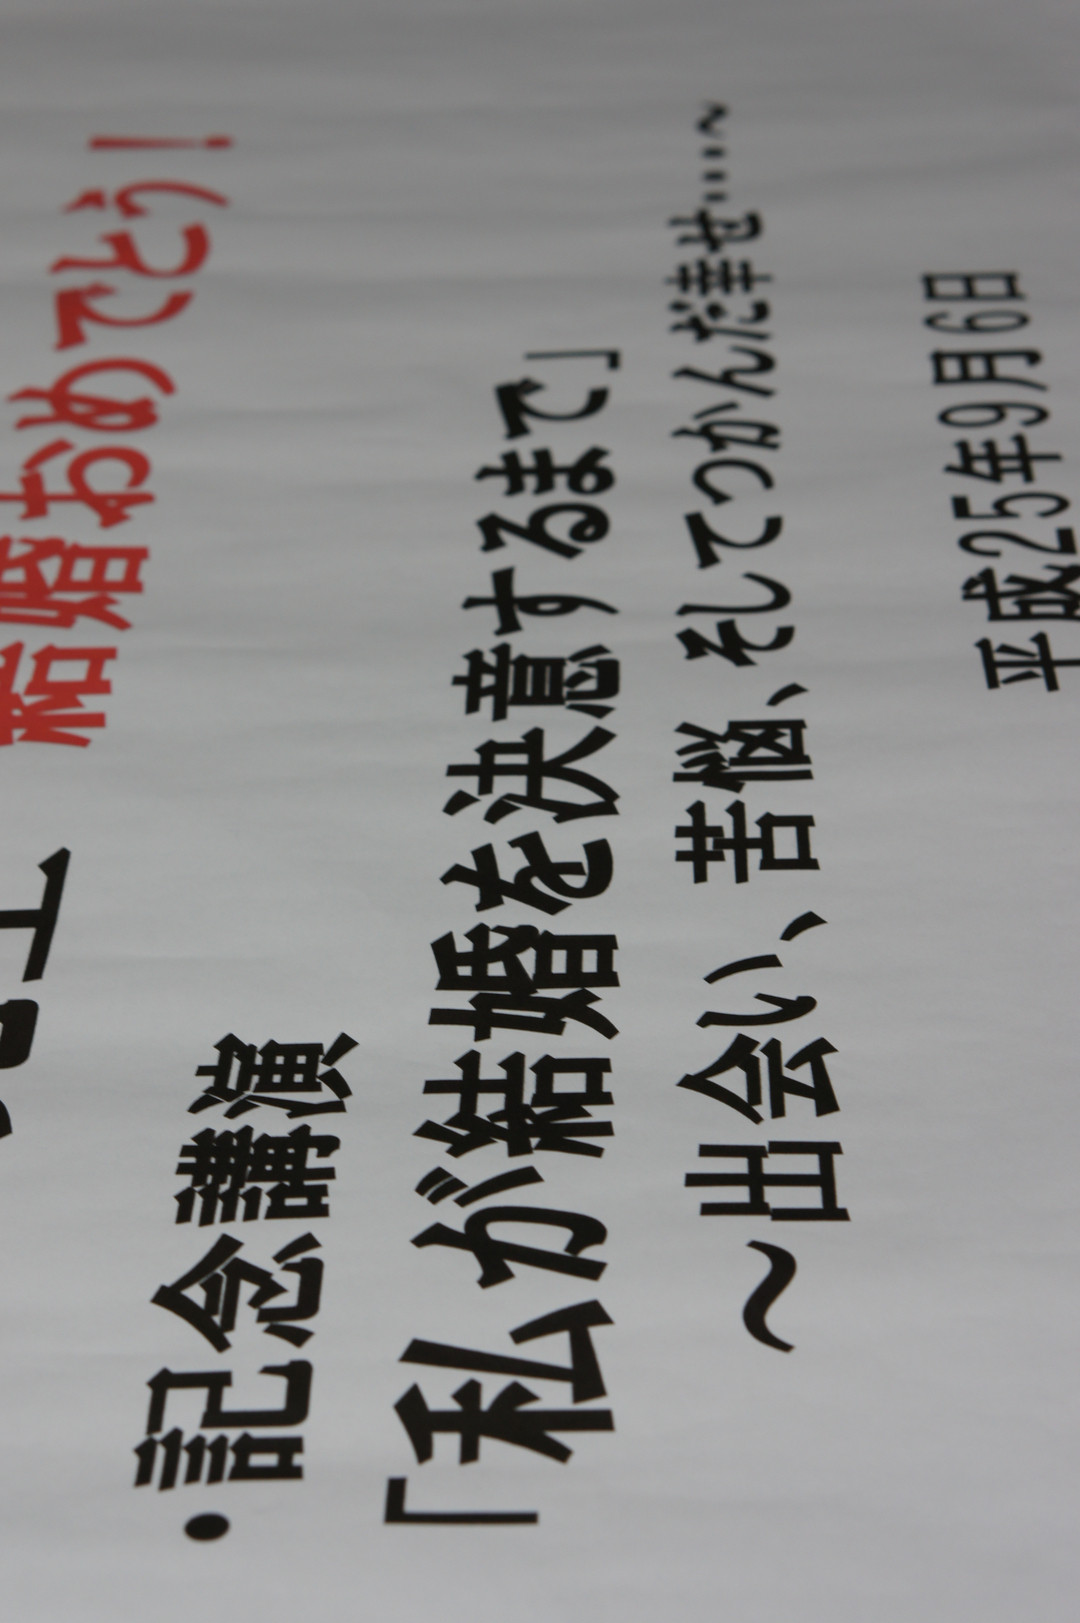 結婚おめでとう！
・記念講演
「私が結婚を決意するまで」
～出会い、苦悩、そしてつかんだ幸せ…～
平成25年9月6日